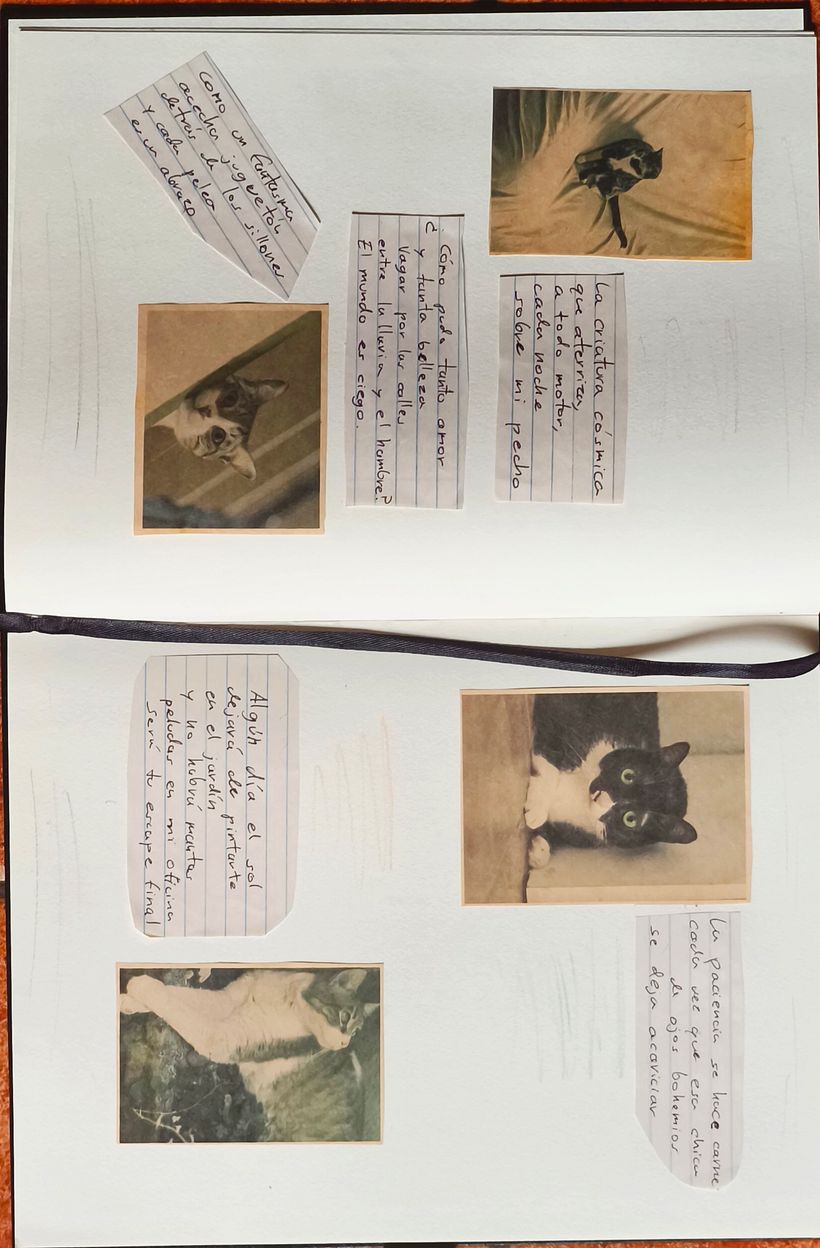 La criatura cósmica
que aterriza,
a todo motor,
cada noche
sobre mi pecho
¿Cómo pudo tanto amor
y tanta belleza
vagar por las calles
entre la lluvia y el hambre?
El mundo es ciego.
Como un fantasma
acechas juguetón
detrás de los sillones
y cada pelea
es un abrazo
La paciencia se hace carne
cada vez que esa chica
de ojos bohemios
se deja acariciar
Algún día el sol
dejará de pintarte
en el jardín
y no habrá mantas
peludas en mi oficina
será tu escape final